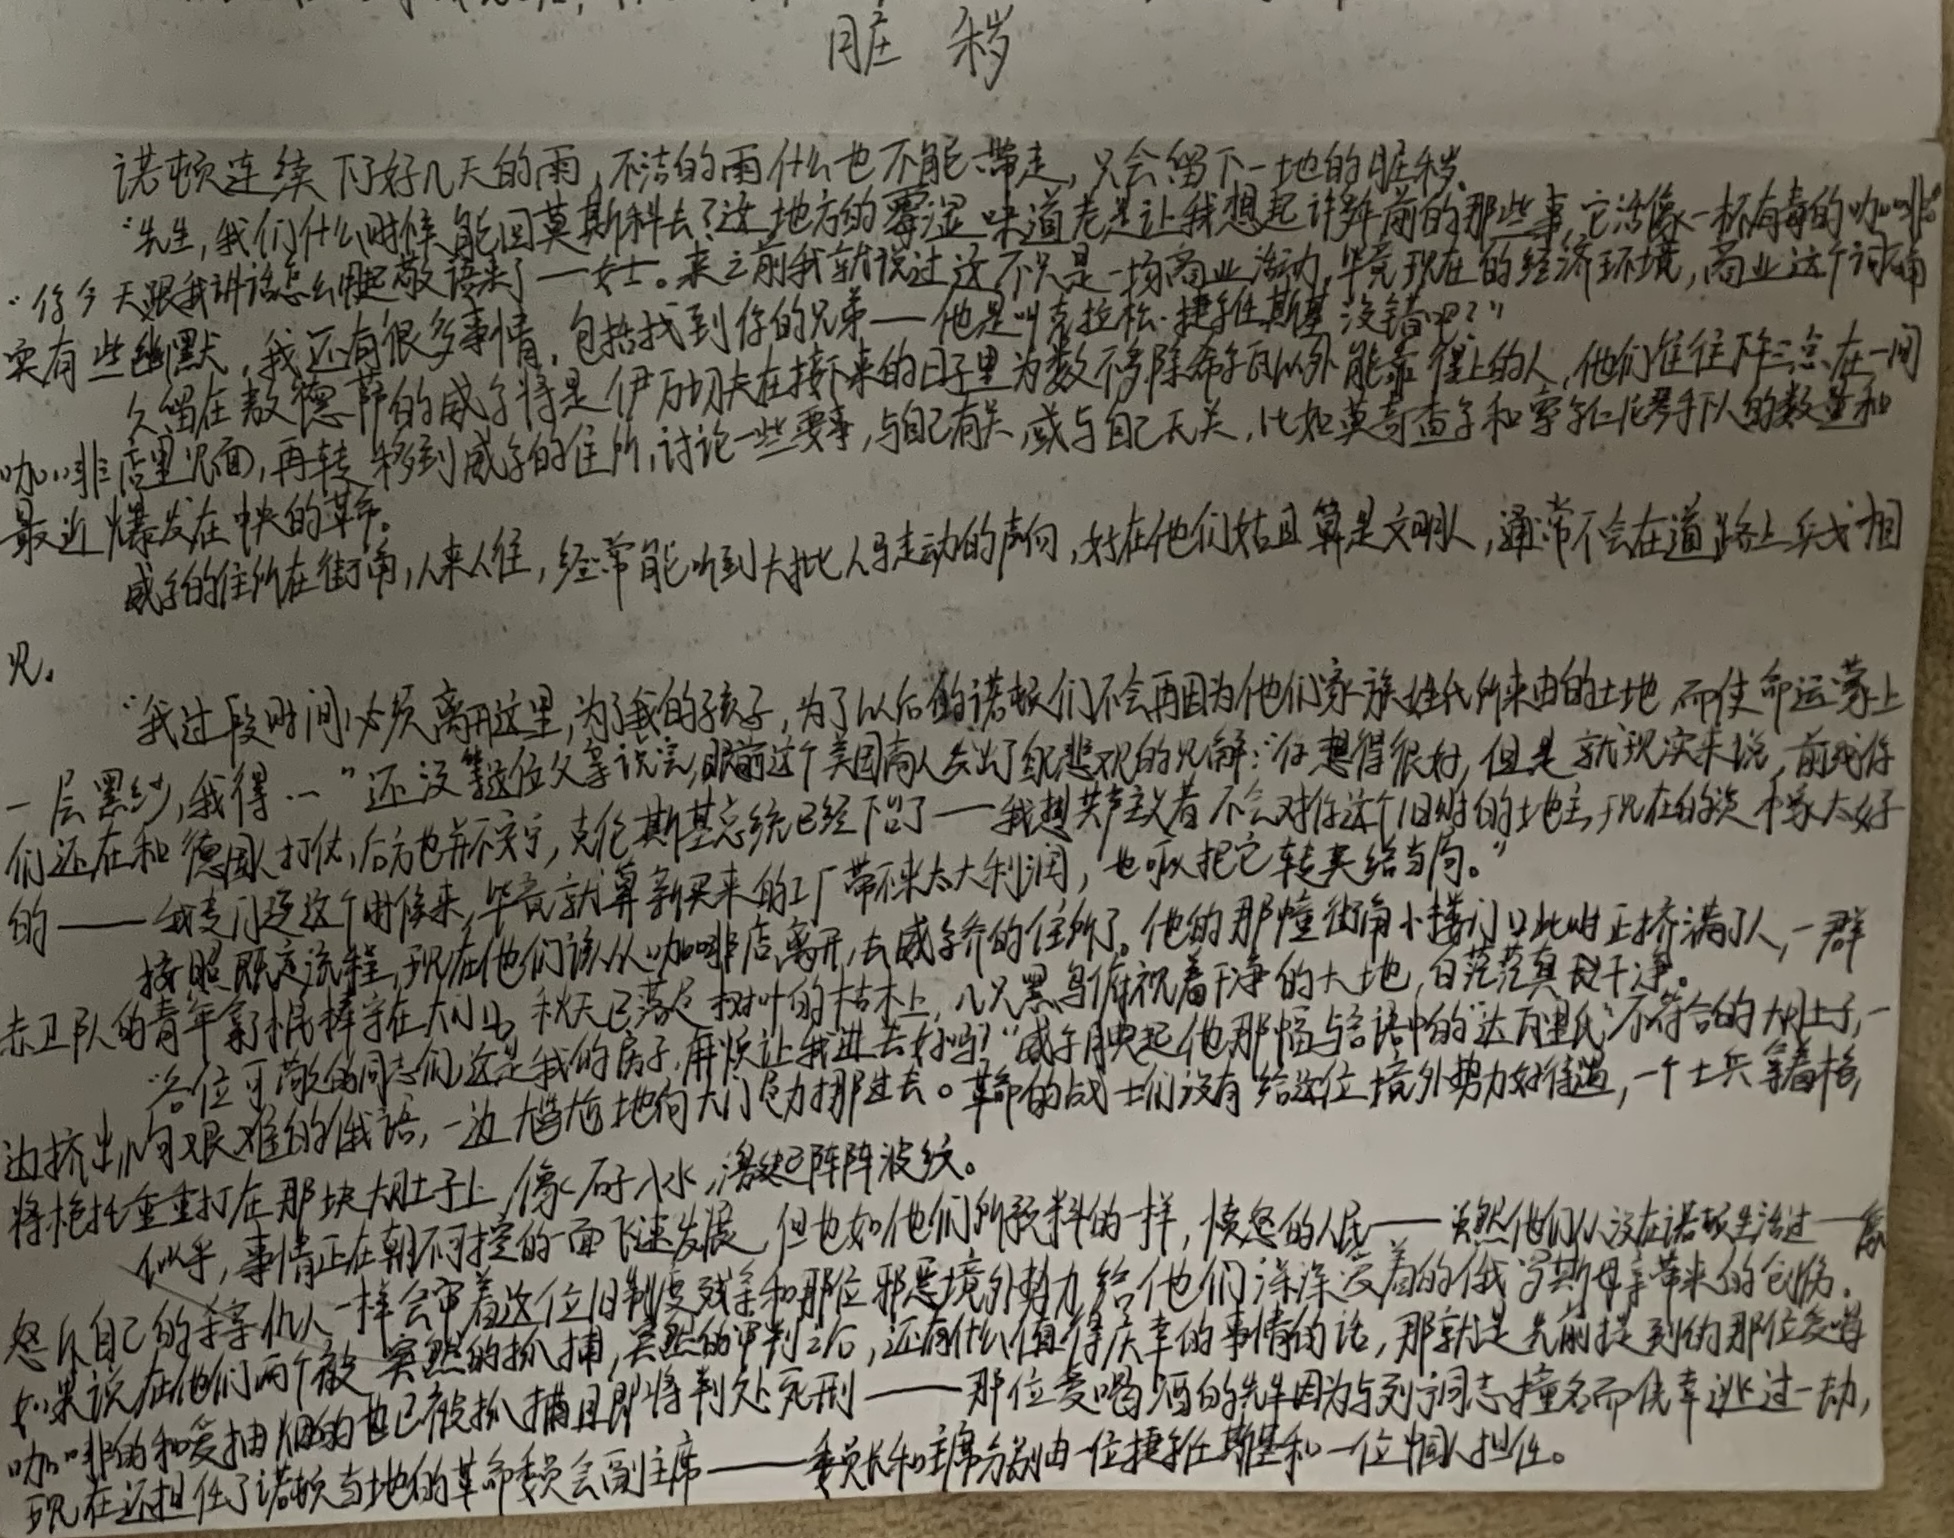 脏 秽
诺顿连续下了好几天的雨,不洁的雨什么也不能带走,只会留下一地的脏秽。
“先生,我们什么时候能回莫斯科去?这地方的霉湿味道老是让我想起许多年前的那些事,它活像一杯有毒的咖啡”
“你今天跟我讲话怎么用起敬语来了——女士。来之前我就说过这不只是一场商业活动,毕竟现在的经济环境,商业这个词确
实有些幽默,我还有很多事情,包括找到你的兄弟——他是叫克拉松·捷尔任斯基没错吧?”
久留在敖德萨的威尔将是伊万切夫在接下来的日子里为数不多除希尔瓦以外能靠得上的人,他们往往下午三点在一间
咖啡店里见面,再转移到威尔的住所,讨论一些要事,与自己有关,或与自己无关,比如莫哥查尔和手下人的数量和
最近爆发在中央的革命。
威尔的住所在街角,人来人往,经常能听到大批人马走动的声向,好在他们姑且算是文明人,通常不会在道路上兵戎相
见。
“我过段时间必须离开这里,为了我的孩子,为了以后的诺顿们不会再因为他们家族姓氏所来由的土地而使命运蒙上
一层黑纱,我得…”还没等这位父亲说完,眼前这个美国商人发出了悲观的见解:“你想得很好,但是就现实来说,前线你
们还在和德国人打仗,后方也并不安宁,克伦斯基总统已经下台了——我想共产主义者不会对你这个旧时的地主,现在的资本家太好
的——我专门趁这个时候来,毕竟就算新买来的工厂带不来太大利润,也可以把它转卖给当局。”
按照既定流程,现在他们该从咖啡店离开,去威尔乔的住所了。他的那幢街角小楼门口此时正挤满了人,一群
赤卫队的青年拿了棍棒守在大门口。秋天已落尽树叶的枯木上,几只黑鸟俯视着干净的大地,白茫茫真干净。
“各位可敬的同志们,这是我的房子,麻烦让我进去好吗?”威尔腆起他那幅与言语中的“达瓦里氏”不符合的大肚子,一
边挤出几句艰难的俄语,一边尴尬地向大门尽力挪过去。革命的战士们没有给这位境外势力好待遇,一个士兵拿着枪,
将枪托重重打在那块大肚子上,像石子入水,激起阵阵波纹。
似乎,事情正在朝不可控的一面飞速发展,但也如他们所预料的一样,愤怒的人民——虽然他们从没在诺顿生活过——像
怒斥自己的杀亲仇人一样会审着这位旧制度残余和那位邪恶境外势力给他们深深爱着的俄罗斯母亲带来的创伤。
如果说在他们两个被突然的抓捕,突然的审判之后,还有什么值得庆幸的事情的话,那就是先前提到的那位爱喝
咖啡的和爱抽烟的也已被抓捕且即将判处死刑——那位爱喝酒的先生因为与列宁同志撞名而侥幸逃过一劫,
现在还担任了诺顿当地的革命委员会副主席——委员长和主席分别由一位捷尔任斯基和一位担任。